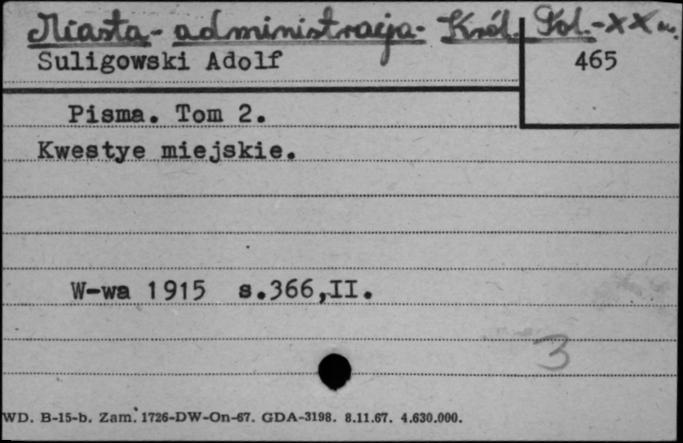 Miasta - administracja - Król. Pol. - XX w.
Suligowski Adolf
465
Pisma. Tom 2.
Kwestye miejskie.
W-wa 1915 s.366,II.
3
WD. B-15-b. Zam. 1726-DW-On-67. GDA-3198. 8.11.67. 4.630.000.